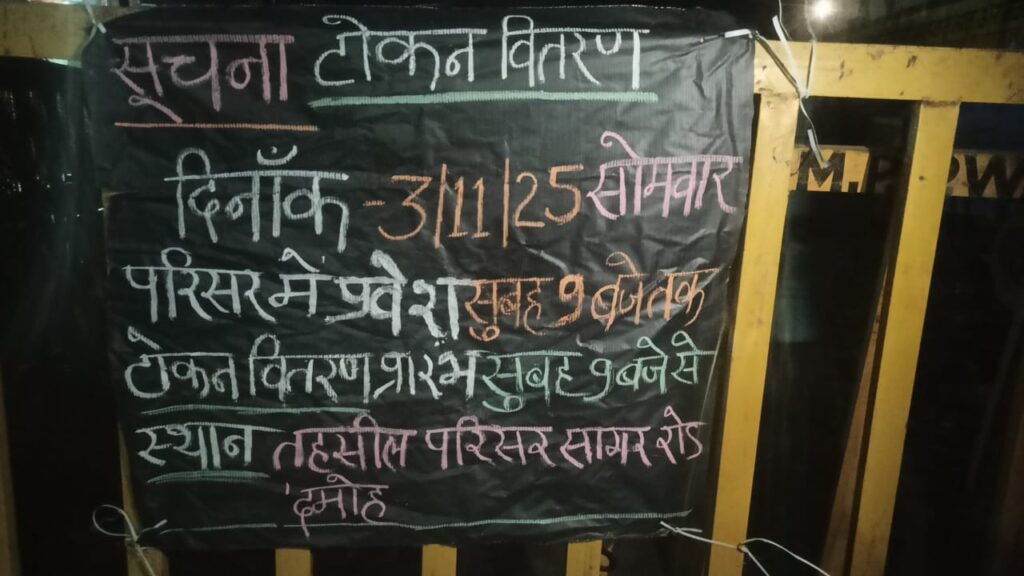 सूचना टोकन वितरण
दिनाँक - 3/11/25 सोमवार
परिसर में प्रवेश सुबह 9 बजे तक
टोकन वितरण प्रारंभ सुबह 9 बजे से
स्थान तहसील परिसर सागर रोड
दमोह
M.P.